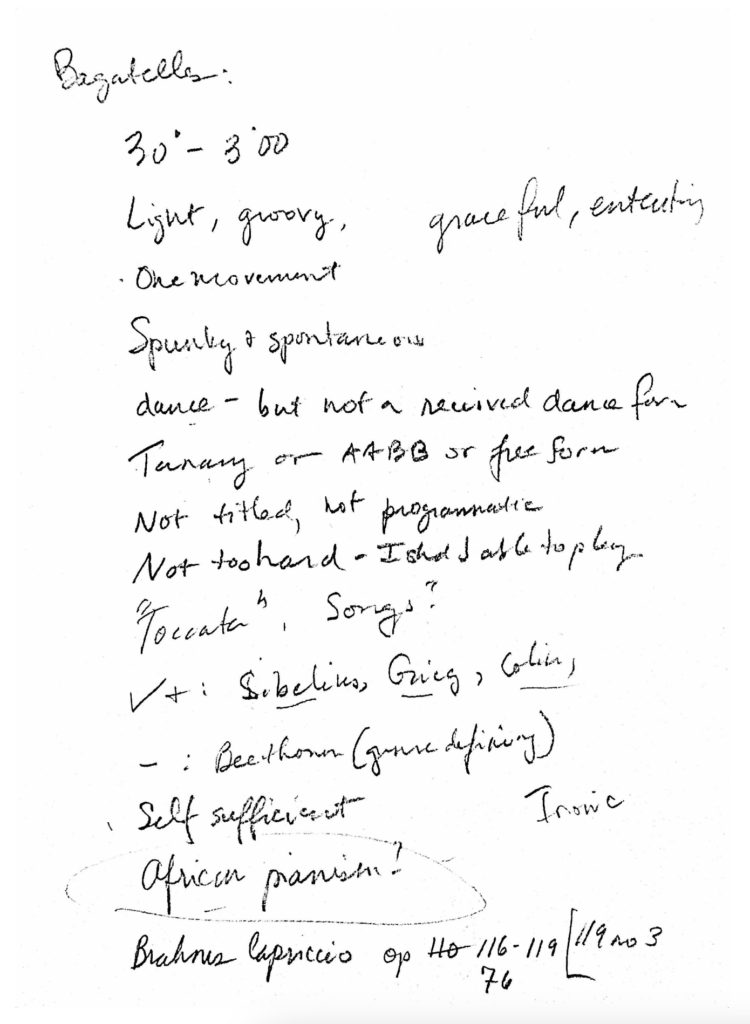 Bagatelles:
30" - 3'00
Light, groovy, graceful, entertaining
· One movement
Spunky & spontaneous
dance - but not a received dance form
Ternary or AABB or free form
Not titled, not programmatic
Not too hard - I shd able to play
"Toccata", Songs?
✓+: Sibelius, Grieg, Colin,
- : Beethoven (genre defining)
Self sufficient Ironic
African pianism?
Brahms Capriccio op 116-119 [119 no 3
76